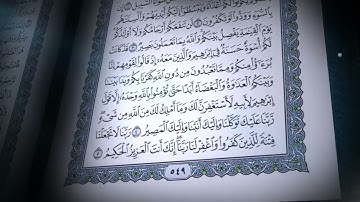 بِٱلسُّوٓءِ وَوَدُّوا۟ لَوْ تَكْفُرُونَ ۝ لَن تَنفَعَكُمْ أَرْحَامُكُمْ وَلَآ أَوْلَٰدُكُمْ
يَوْمَ ٱلْقِيَٰمَةِ يَفْصِلُ بَيْنَكُمْ وَٱللَّهُ بِمَا تَعْمَلُونَ بَصِيرٌ ۝ قَدْ كَانَتْ
لَكُمْ أُسْوَةٌ حَسَنَةٌ فِىٓ إِبْرَٰهِيمَ وَٱلَّذِينَ مَعَهُۥٓ إِذْ قَالُوا۟ لِقَوْمِهِمْ إِنَّا
بُرَءَٰٓؤُا۟ مِنكُمْ وَمِمَّا تَعْبُدُونَ مِن دُونِ ٱللَّهِ كَفَرْنَا بِكُمْ وَبَدَا بَيْنَنَا
وَبَيْنَكُمُ ٱلْعَدَٰوَةُ وَٱلْبَغْضَآءُ أَبَدًا حَتَّىٰ تُؤْمِنُوا۟ بِٱللَّهِ وَحْدَهُۥٓ إِلَّا قَوْلَ
إِبْرَٰهِيمَ لِأَبِيهِ لَأَسْتَغْفِرَنَّ لَكَ وَمَآ أَمْلِكُ لَكَ مِنَ ٱللَّهِ مِن شَىْءٍ
رَّبَّنَا عَلَيْكَ تَوَكَّلْنَا وَإِلَيْكَ أَنَبْنَا وَإِلَيْكَ ٱلْمَصِيرُ ۝ رَبَّنَا لَا تَجْعَلْنَا
فِتْنَةً لِّلَّذِينَ كَفَرُوا۟ وَٱغْفِرْ لَنَا رَبَّنَآ إِنَّكَ أَنتَ ٱلْعَزِيزُ ٱلْحَكِيمُ ۝
٥٤٩